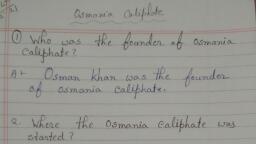 Osmania Caliphate
① Who was the founder of Osmania
Caliphate?
A+ Osman khan was the founder
of osmania caliphate.
Q. Where the Osmania Caliphate was
started?